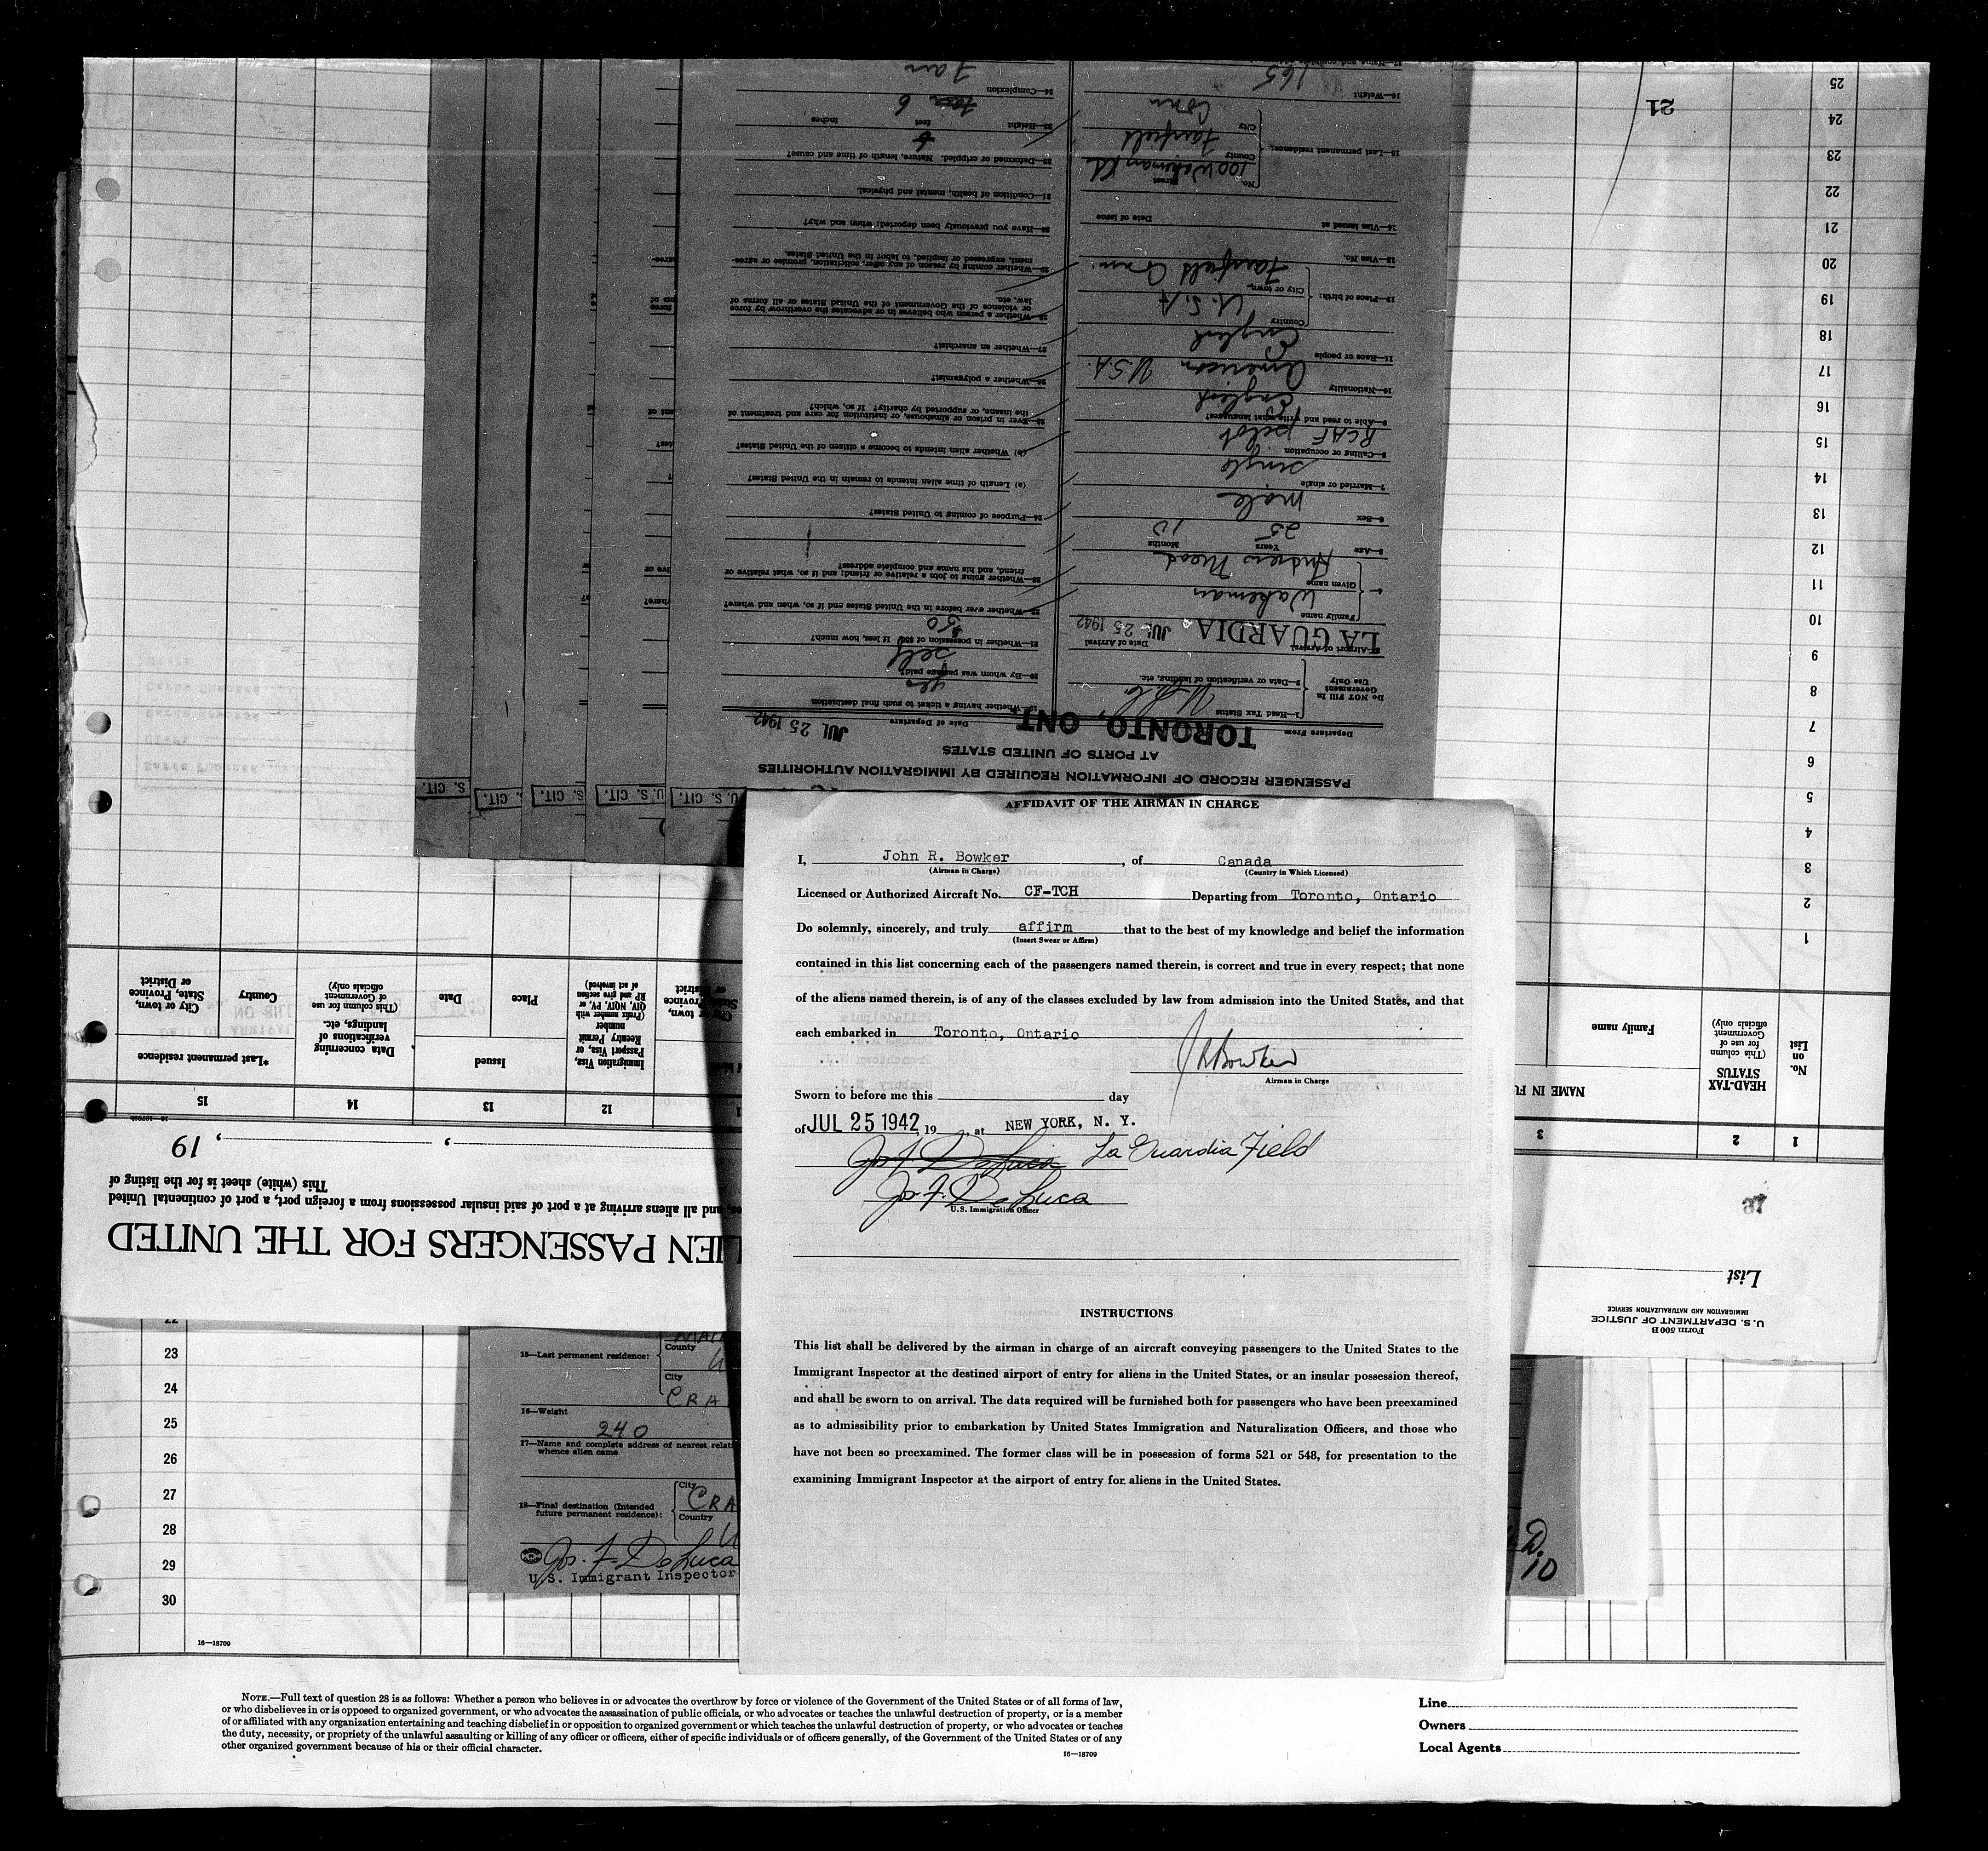 AFFIDAVIT OF THE AIRMAN IN CHARGE
I, John R. Bowker, of Canada
(Airman in Charge) (Country in Which Licensed)
Licensed or Authorized Aircraft No. CF-TCH Departing from Toronto, Ontario
Do solemnly, sincerely, and truly affirm that to the best of my knowledge and belief the information
(Insert Swear or Affirm)
contained in this list concerning each of the passengers named therein, is correct and true in every respect; that none
of the aliens named therein, is of any of the classes excluded by law from admission into the United States, and that
each embarked in Toronto, Ontario
J R Bowker
Airman in Charge
Sworn to before me this day
of JUL 25 1942, 19 , at NEW YORK, N. Y.
Jos. F. DeLuca La Guardia Field
Jos. F. DeLuca
U.S. Immigration Officer
INSTRUCTIONS
This list shall be delivered by the airman in charge of an aircraft conveying passengers to the United States to the
Immigrant Inspector at the destined airport of entry for aliens in the United States, or an insular possession thereof,
and shall be sworn to on arrival. The data required will be furnished both for passengers who have been preexamined
as to admissibility prior to embarkation by United States Immigration and Naturalization Officers, and those who
have not been so preexamined. The former class will be in possession of forms 521 or 548, for presentation to the
examining Immigrant Inspector at the airport of entry for aliens in the United States.
PASSENGER RECORD OF INFORMATION REQUIRED BY IMMIGRATION AUTHORITIES
AT PORTS OF UNITED STATES
Departure From TORONTO, ONT. Date of Departure JUL 25 1942
Do NOT Fill In Government Use Only
1—Head Tax Status
2—Data or verification of landing, etc.
3—Airport of Arrival Date of Arrival
LA GUARDIA JUL 25 1942
4— Family name Wakeman
Given name Andrew Mead
5—Age 25 Years 10 Months
6—Sex male
7—Married or single single
8—Calling or occupation RCAF pilot
9—Able to read and write what languages? English
10—Nationality American U.S.A.
11—Race or people English
12—Place of birth: Country U.S.A
City or town, Fairfield Conn.
13—Visa No.
14—Visa issued at Date of issue
15—Last permanent residence: No. Street 100 Wakeman Rd
County Fairfield
City Conn
16—Weight 165
19—Whether having a ticket to such final destination yes
20—By whom was passage paid? self
21—Whether in possession of $50 If less, how much? $50
22—Whether ever before in the United States and if so, when and where?
23—Whether going to join a relative or friend; and if so, what relative or
friend, and his name and complete address?
24—Purpose of coming to United States?
(a) Length of time alien intends to remain in the United States?
(b) Whether alien intends to become a citizen of the United States?
25—Ever in prison or almshouse, or institution for care and treatment of
the insane, or supported by charity? If so, which?
26—Whether a polygamist?
27—Whether an anarchist?
28—Whether a person who believes in or advocates the overthrow by force
or violence of the Government of the United States or all forms of
law, etc.
29—Whether coming by reason of any offer, solicitation, promise or agree-
ment, expressed or implied, to labor in the United States.
30—Have you previously been deported; when and why?
31—Condition of health, mental and physical.
32—Deformed or crippled. Nature, length of time and cause?
33—Height feet inches 6
34—Complexion Fair
S. CIT.
S. CIT.
S. CIT.
U. S. CIT.
U. S. CIT.
21
1
2
3
4
5
6
7
8
9
10
11
12
13
14
15
16
17
18
19
20
21
22
23
24
25
Form 500 B
U. S. DEPARTMENT OF JUSTICE
IMMIGRATION AND NATURALIZATION SERVICE
List
LIEN PASSENGERS FOR THE UNITED
and all aliens arriving at a port of said insular possessions from a foreign port, a port of continental United
This (white) sheet is for the listing of
, , 19
1 2 3 12 13 14 15
No. on List
HEAD-TAX STATUS
(This column for use of Government officials only)
NAME IN FU
Family name
Immigration Visa, Passport Visa, or Reentry Permit number
(Prefix number with QIV, NQIV, PV, or RP and give section of act involved)
Issued
Place
Date
Data concerning verifications of landings, etc.
(This column for use of Government officials only)
*Last permanent residence
Country
City or town, State, Province or District
22
23
24
25
26
27
28
29
30
16—18709
15—Last permanent residence:
County
City CRA
16—Weight 240
17—Name and complete address of nearest relati
whence alien came
18—Final destination (Intended
future permanent residence):
City CRA
Country U
Jos. F. DeLuca
U.S. Immigrant Inspector
D.
10
NOTE.—Full text of question 28 is as follows: Whether a person who believes in or advocates the overthrow by force or violence of the Government of the United States or of all forms of law,
or who disbelieves in or is opposed to organized government, or who advocates the assassination of public officials, or who advocates or teaches the unlawful destruction of property, or is a member
of or affiliated with any organization entertaining and teaching disbelief in or opposition to organized government or which teaches the unlawful destruction of property, or who advocates or teaches
the duty, necessity, or propriety of the unlawful assaulting or killing of any officer or officers, either of specific individuals or of officers generally, of the Government of the United States or of any
other organized government because of his or their official character.
16—18709
Line
Owners
Local Agents